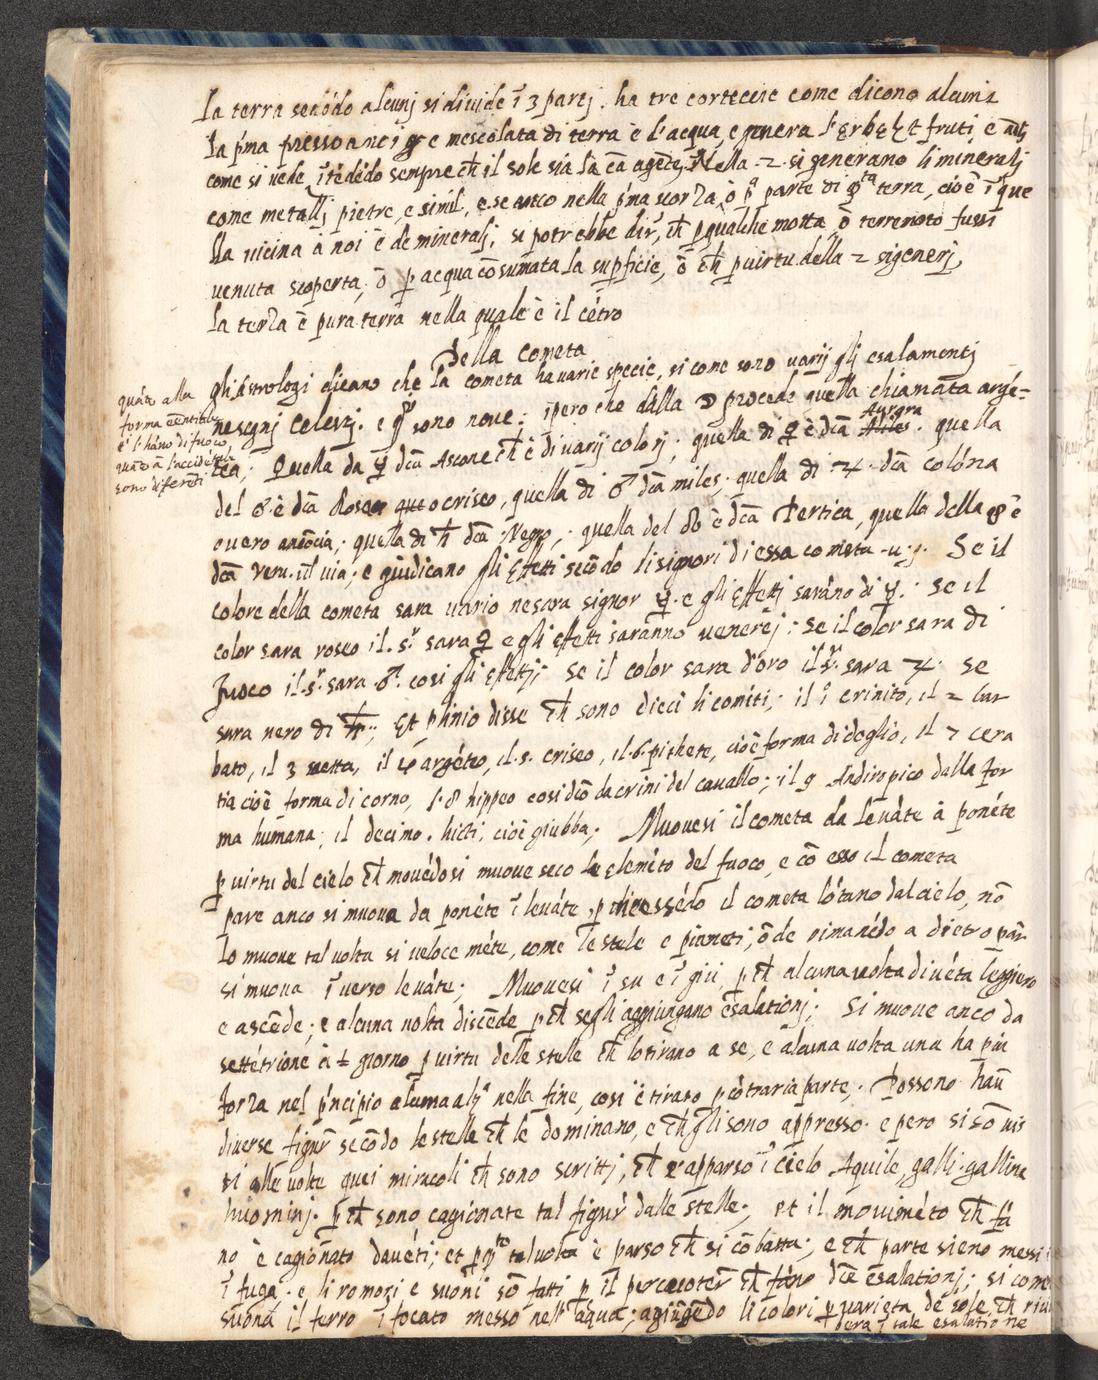 la terra secõdo alcunj si divide ĩ 3 partj. ha tre corteccie come dicono alcunj
la p'ma presso a noi e mescolata di terra e d'acqua, e genera l'erbe et fruti, e
come si vede, ĩtẽdẽdo sempre ch̃ il sole sia la cã agẽte, Nella 2. si generano li mineralj
come metallj pietre, e simil, e se anco nella p'ma scorza, ò parte di terra, cioè ĩ que
lla vicina à noi è de mineralj, si potrebbe dir, ch̃ p qualche motta, ò terremoto fussi
venuta scoperta, ò p acqua cõsumata la supficie, ò ch̃ p virtu della 2 si generj,
la terza è pura terra nella quale è il cẽtro
Della cometa
gli Astrologi dicano che la cometa ha varie specie, si come sono varij gli esalamentj
ne segnj celesj. e sono nove: ĩpero che dalla ☽ procede quella chiamata argẽ=
tea; Quella da ☿ dcã Ascone ch̃ è di varij colorj; quella di ♀ è dcã Aurora. quella
quãto alla
forma
è l'hãno di fuoco
quãto à l'accidẽtale
sono diferẽti
del ♂ è dcã Rosea o criseo, quella di ♂ dcã miles; quella di ♃ dcã colõna
overo ; quella di ♄ dcã Negra; quella del ☊ è dcã Pertica, quella della è
dcã Veru. ; e giudicano gli effetti secõdo li signori di essa cometa . Se il
colore della cometa sara vario ne sara signor ☿. e gli effetti sarãno di ☿. Se il
color sara roseo il s.r sara ♀ e gli effetti saranno venerej: se il color sara di
fuoco il s.r sara ♂. cosi gli effettj; se il color sara d'oro il s.r sara ♃. se
sara nero di ♄; Et plinio disse ch̃ sono dieci li comiti; il 1 crinito, il 2 bar
bato, il 3 , il 4 argẽteo, il 5. criseo, il 6 pithete, cioè forma di doglio, il 7 cera
tia cioè forma di corno, l'8 hippeo cosi dcõ da crini del cavallo; il 9 Andiropico dalla for
ma humana; il decimo. hirti, cioè giubba; Muovesi il cometa da levãte à ponẽte
p virtu del cielo ch̃ movẽdosi muove seco le elemẽto del fuoco, e cõ esso il cometa
pare anco si muova da ponẽte ĩ levãte, p ch̃ essẽdo il cometa lõtano dal cielo, nõ
lo muove tal volta si veloce mẽte, come le stele e pianeti, õde rimanẽdo a dietro par
si muova ĩ verso levãte; Muovesi ĩ su e ĩ giù, p ch̃ alcuna volta divẽta leggiero
e ascẽde; e alcuna volta discẽde p ch̃ segli aggiungano esalationj; Si muove anco da
settẽtrione à ½ giorno p virtu delle stelle ch̃ lo tirano a se, e alcuna volta una ha più
forza nel p'ncipio alcuna altra nella fine, cosi è tirato p cõtraria parte; Possono hav
diverse figur' secõdo le stelle ch̃ le dominano, e ch̃ gli sono appresso. e pero si sõ vis
ti alle volte quei miracoli ch̃ sono scrittj, ch̃ è apparso ĩ cielo Aquile, galli. galline
huominj. p ch̃ sono cagionate tal figur' dalle stelle; et il movimẽto ch̃ fã
no è cagionato da vẽti; et p q.to tal volta è parso ch̃ si cõbatta; e ch̃ parte sieno messi
ĩ fuga. e li romori e suoni sõ fatti p il percuoter' ch̃ fãno dce esalationj; si come
suona il ferro ĩfocato messo nell'aqua; agiũgẽdo li colori p varieta de sole, ch̃
tale esalatione